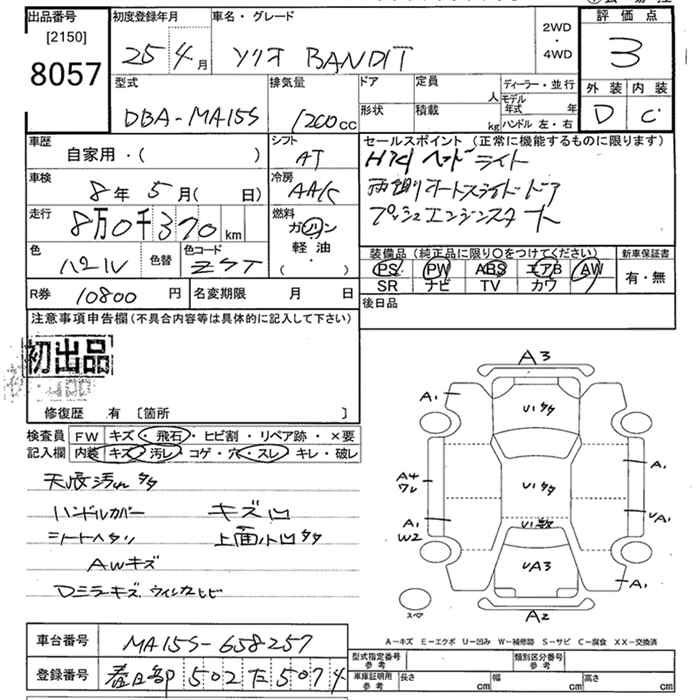 出品番号
[2150]
8057
初度登録年月
25年4月
車名・グレード
ソリオ BANDIT
2WD
・
4WD
評価点
3
外装 内装
D C
型式
DBA-MA15S
排気量
1200cc
ドア
形状
定員
人
積載
kg
ディーラー・並行
モデル年式 年
ハンドル 左・右
車歴
自家用・( )
シフト
AT
車検
8年5月( 日)
冷房
AAC
走行
8万0千370km
燃料
ガソリン
軽油
( ・ )
色
パール
色替
色コード
ZST
R券 10800 円
名変期限 月 日
セールスポイント(正常に機能するものに限ります)
HID ヘッドライト
両側オートスライドドア
プッシュエンジンスタート
装備品(純正品に限り〇をつけてください)
PS PW ABS エアB AW
SR ナビ TV カワ
新車保証書
有・無
後日品
注意事項申告欄(不具合内容等は具体的に記入して下さい)
初出品
修復歴 有 〔箇所 〕
検査員
記入欄
FW キズ・飛石・ヒビ割・リペア跡・×要
内装 キズ・汚レ・コゲ・穴・スレ・キレ・破レ
天張汚れ多々
ハンドルカバー キズ凹
シートヘタリ 上面小凹多々
AWキズ
Dミラーキズ、ウィンカヒビ
A3
A1
U1多々
A1
A4
ワレ
U1多々
A1
W2
UA1
UA3
A1
A2
スペア
A-キズ E-エクボ U-凹み W-補修跡 S-サビ C-腐食 XX-交換済
車台番号 MA15S-658257
登録番号 春日部 502 た 5074
型式指定番号
参考
類別区分番号
参考
車庫証明用
参考
長さ cm
幅 cm
高さ cm